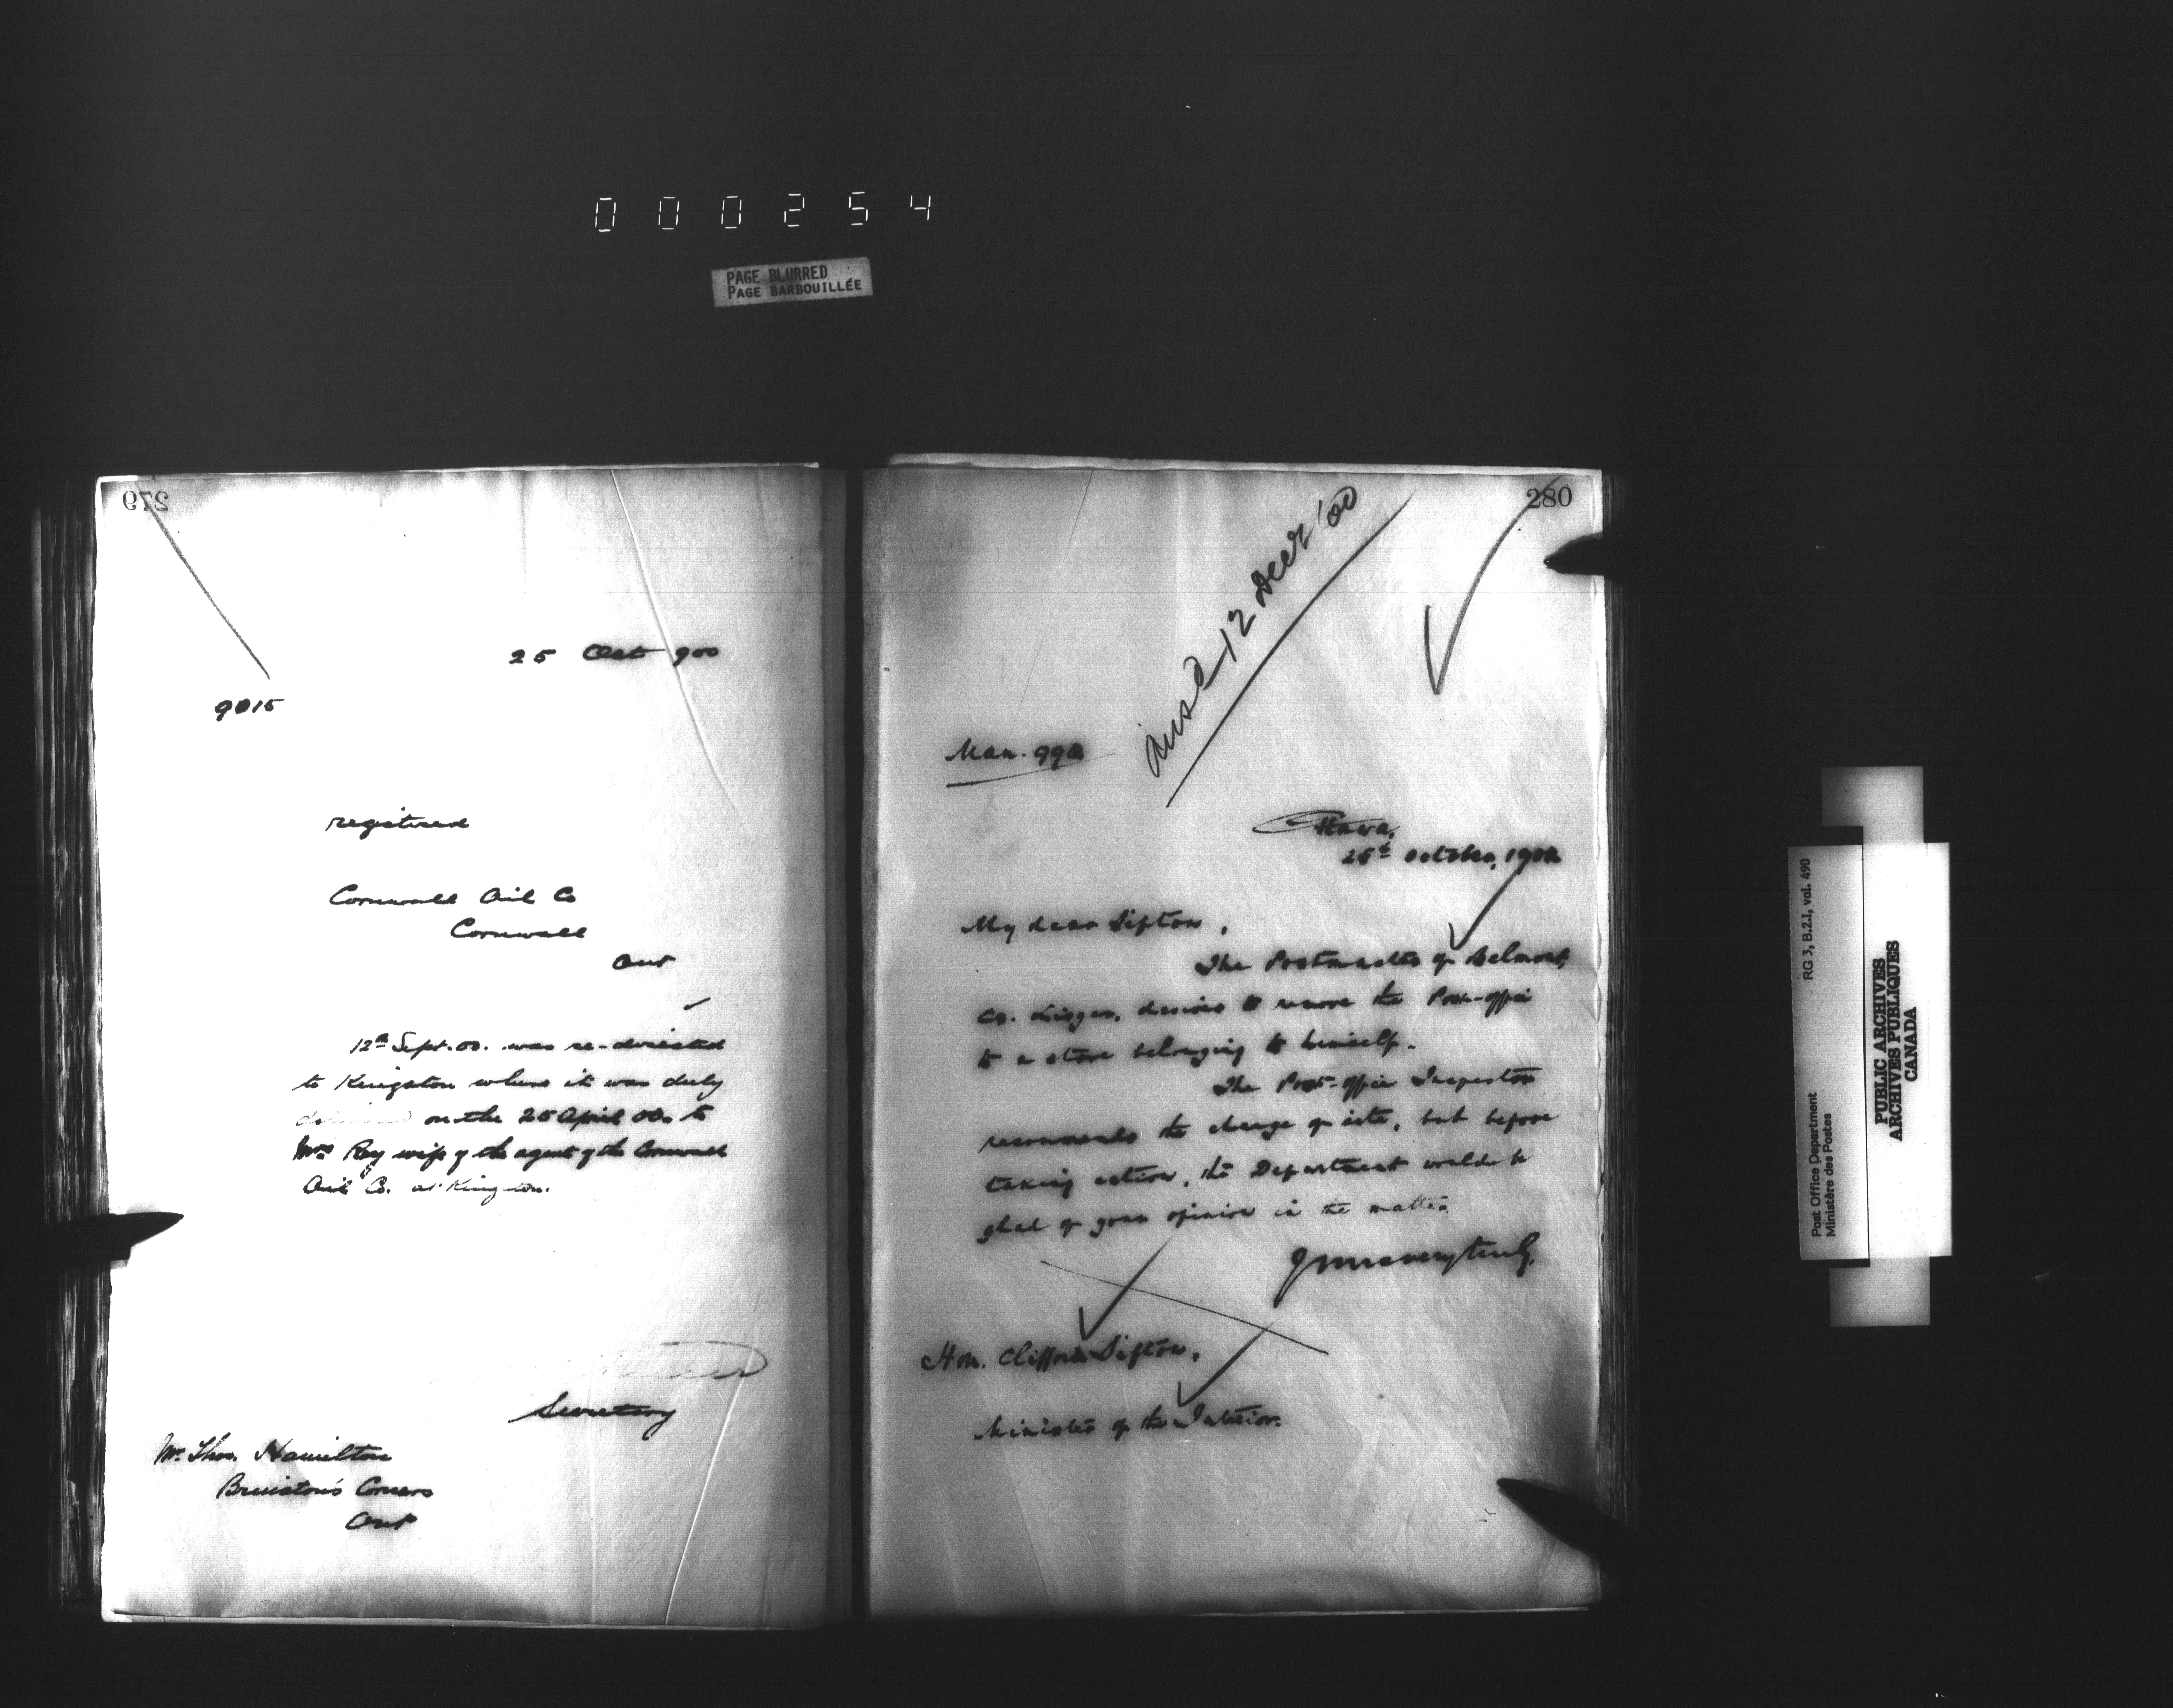 000254
PAGE BLURRED
PAGE BARBOUILLÉE
279
25 Oct 900
9015
registered
Cornwall Oil Co
Cornwall
Ont
12th Sept. 00. was re-directed
to Kingston where it was duly
delivered on the 25 April 00. to
Mrs Ray wife of the agent of the Cornwall
Oil Co. at Kingston.
Secretary
Mr. Thos. Hamilton
Brinston's Corners
Ont
280
Ansd 12 Decr '00
Man. 992
Ottawa,
25th October, 1900
My dear Sifton,
The Postmaster of Belmont,
Co. Lisgar, desires to remove the Post-office
to a store belonging to himself.
The Post-office Inspector
recommends the change of site, but before
taking action, the Department would be
glad of your opinion in the matter.
Yours very truly,
Hon. Clifford Sifton,
Minister of the Interior.
Post Office Department
Ministère des Postes
RG 3, B.2.I, vol. 490
PUBLIC ARCHIVES
ARCHIVES PUBLIQUES
CANADA